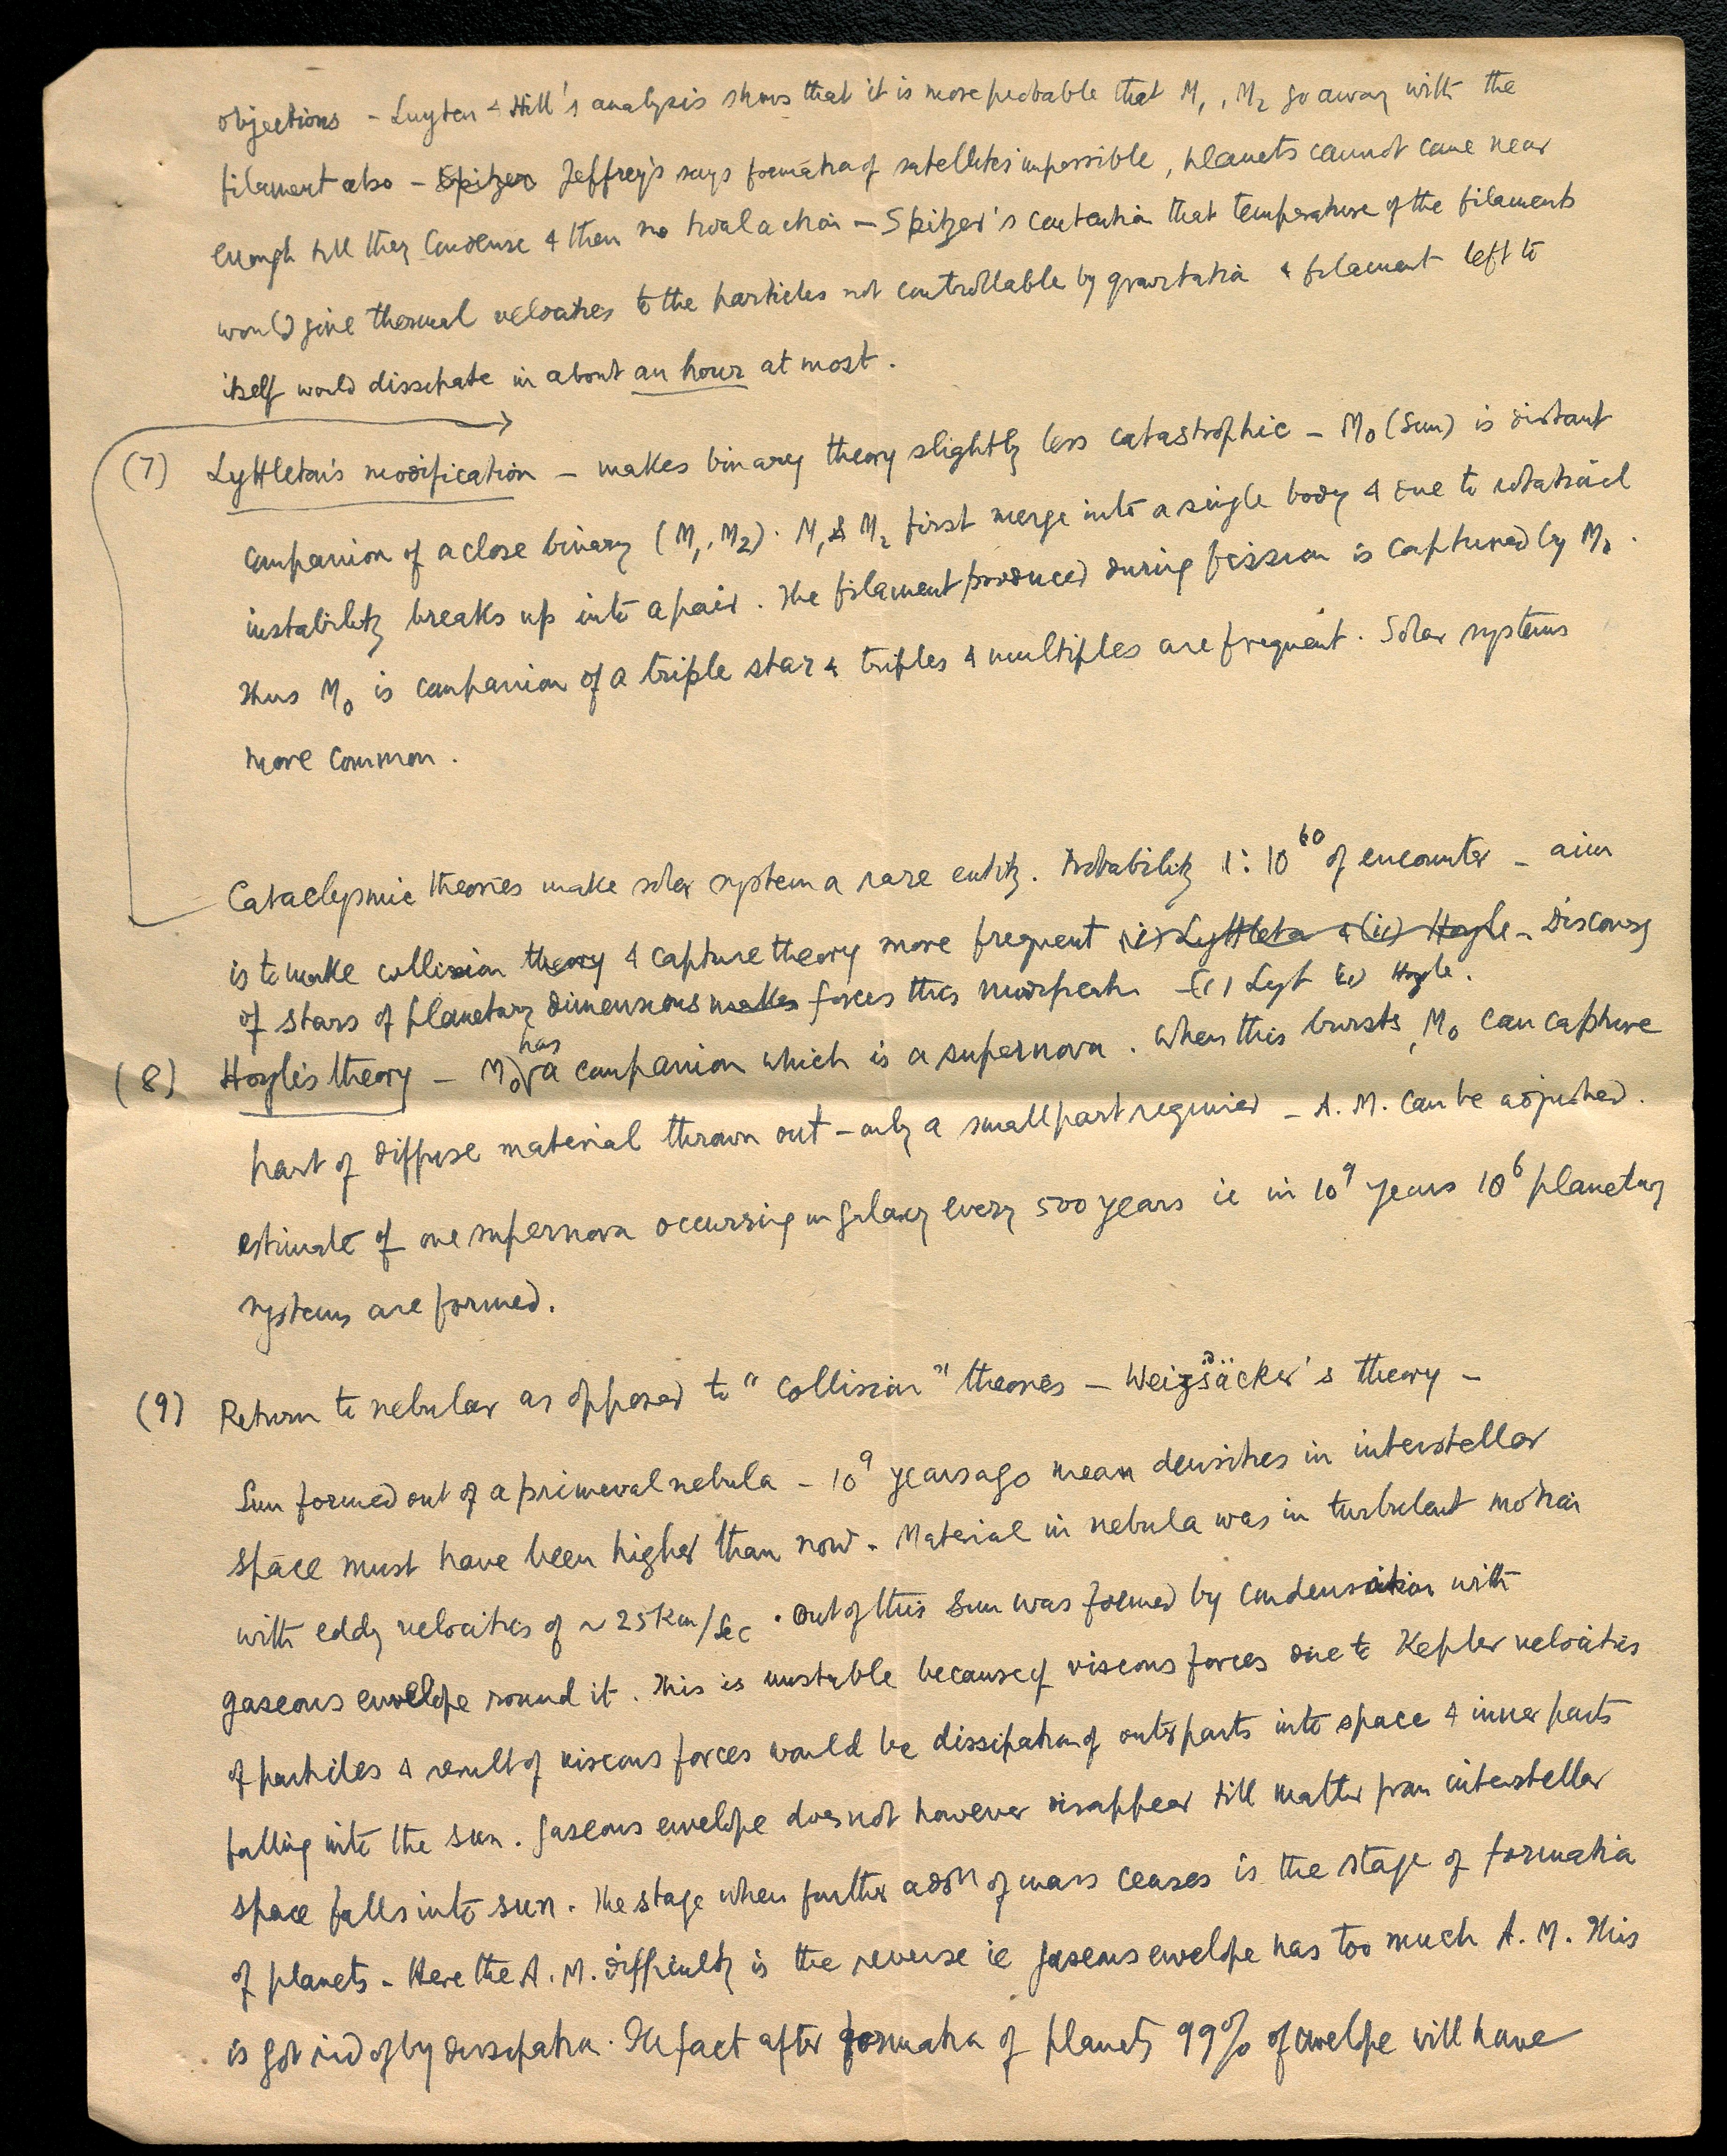 objections - Luyten & Hill's analysis shows that it is more probable that M₁, M₂ go away with the
filament also - Spitzer Jeffrey's says formation of satellites impossible, planets cannot come near
enough till they condense & then no tidal action - Spitzer's contention that temperature of the filaments
would give thermal velocities to the particles not controllable by gravitation & filament left to
itself would dissipate in about an hour at most.
(7) Lyttleton's modification - makes binary theory slightly less catastrophic - M₀ (Sun) is distant
companion of a close binary (M₁, M₂). M₁ & M₂ first merge into a single body & due to rotational
instability breaks up into a pair. The filament produced during fission is captured by M₀.
Thus M₀ is companion of a triple star & triples & multiples are frequent. Solar systems
more common.
Cataclysmic theories make solar system a rare entity. Probability 1:10⁶⁰ of encounter - aim
is to make collision theory & capture theory more frequent (i) Lyttleton & (ii) Hoyle - Discovery
of stars of planetary dimensions makes forces this modification - (i) Lyt (ii) Hoyle.
(8) Hoyle's theory - M₀ has a companion which is a supernova. When this bursts, M₀ can capture
part of diffuse material thrown out - only a small part required - A.M. can be adjusted.
estimate of one supernova occurring in galaxy every 500 years ie in 10⁹ years 10⁶ planetary
systems are formed.
(9) Return to nebular as opposed to "collision" theories - Weizsäcker's theory -
Sun formed out of a primeval nebula - 10⁹ years ago mean densities in interstellar
space must have been higher than now. Material in nebula was in turbulent motion
with eddy velocities of ~ 25 Km/Sec. Out of this Sun was formed by condensation with
gaseous envelope round it. This is unstable because of viscous forces due to Kepler velocities
of particles & result of viscous forces would be dissipation of outer parts into space & inner parts
falling into the sun. Gaseous envelope does not however disappear till matter from interstellar
space falls into sun. The stage when further addn of mass ceases is the stage of formation
of planets - Here the A.M. difficulty is the reverse ie gaseous envelope has too much A.M. This
is got rid of by dissipation. In fact after formation of planets 99% of envelope will have